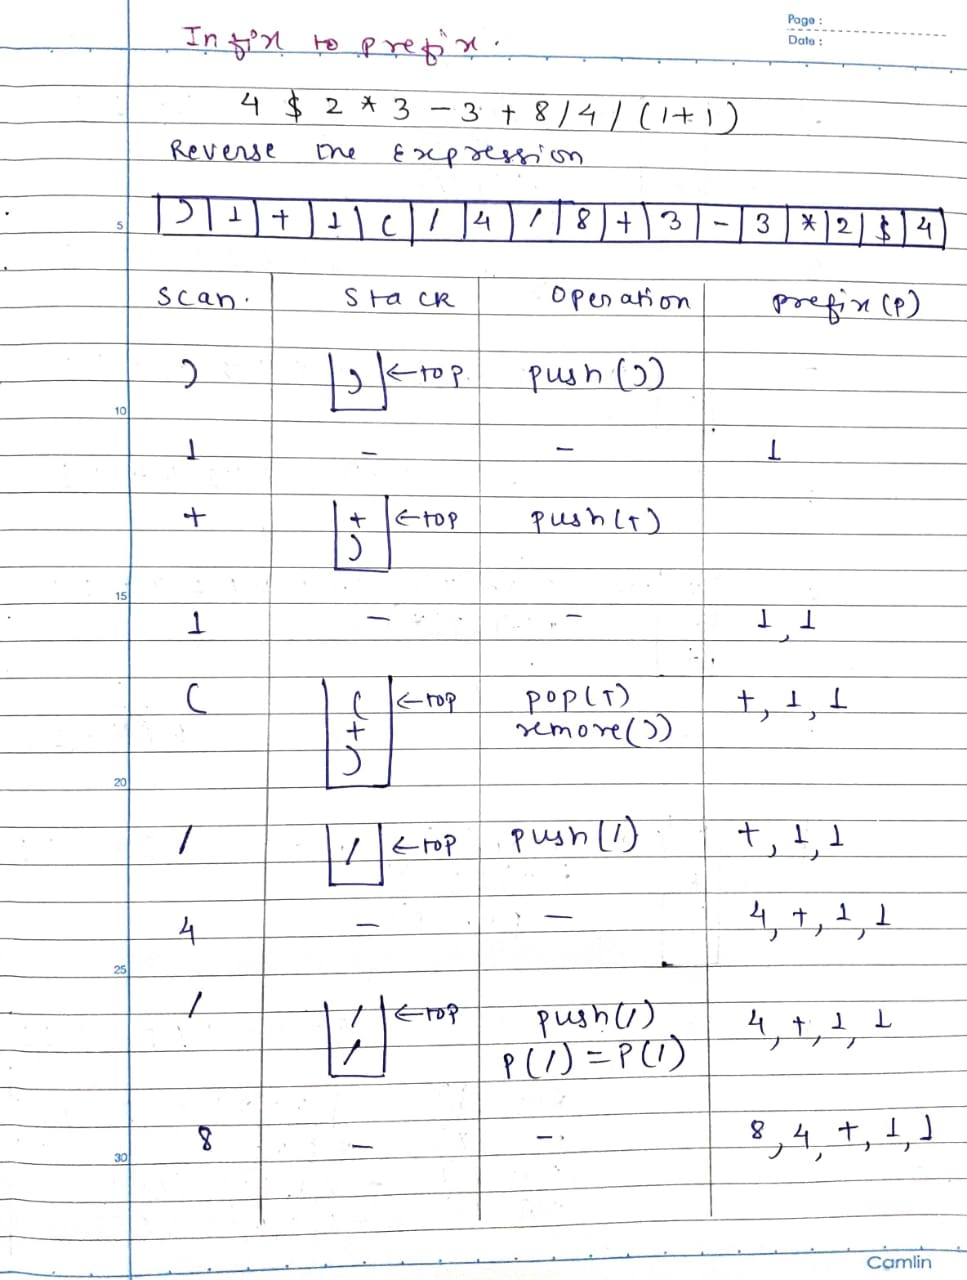 Page :
Date :
Infix to prefix.
4 $ 2 * 3 - 3 + 8/4/(1+1)
Reverse the Expression
5 ) 1 + 1 ( / 4 / 8 + 3 - 3 * 2 $ 4
scan. Stack Operation prefix(P)
) ) ←top push())
10
1 - - 1
+ + ←top push(+)
)
15
1 - - 1, 1
( ( ←top pop(+) +, 1, 1
+ remove())
)
20
/ / ←top push(/) +, 1, 1
4 - - 4, +, 1, 1
25
/ / ←top push(/) 4, +, 1, 1
/ P(/) = P(/)
8 - - 8, 4, +, 1, 1
30
Camlin